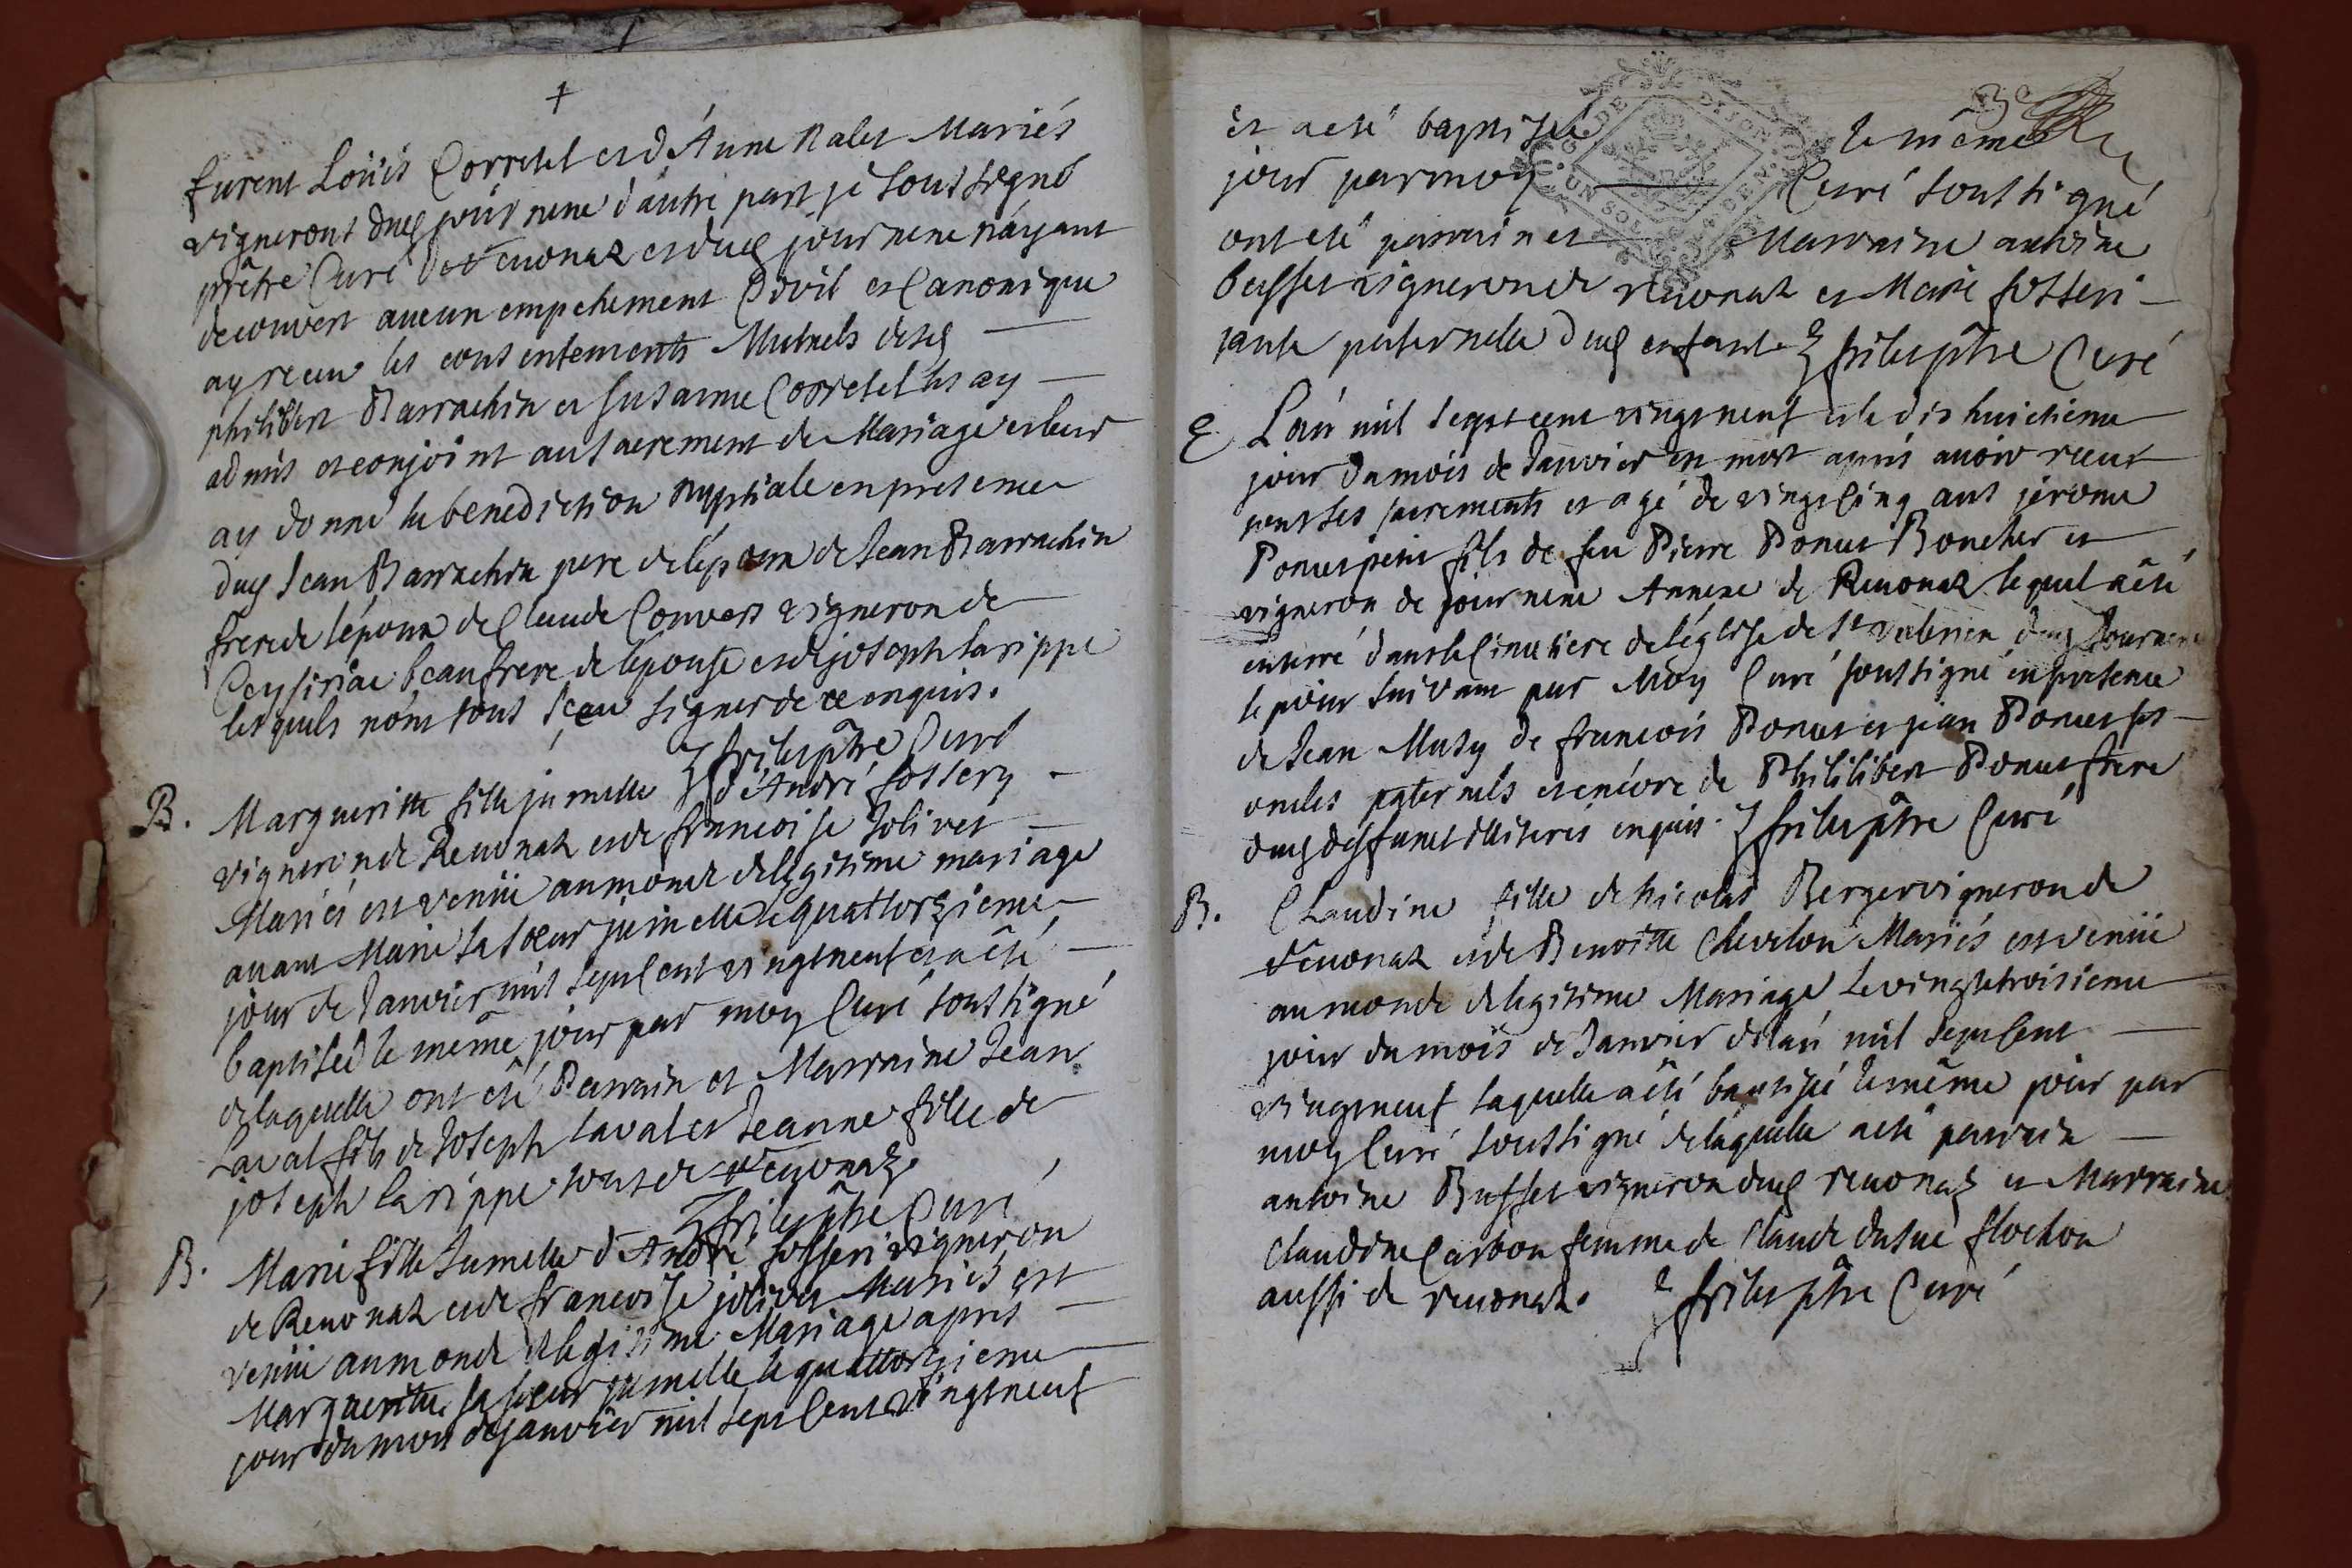 +
furent Loüis Corretel et d'Anne Ralet Mariés
vignerons dud jour nene d'autre part je soussigné
prêtre Curé de Revonaz et dud journene n'ayant
decouvert aucun empechement Civil et Canonique
ay receu les consentements Mutuels desd
philibert Barrachin et Susanne Corretel les ay
admis et conjoint au sacrement de Mariage et leur
ay donné la benediction nuptiale en presence
dud Jean Barrachin pere de l'époux de Jean Barrachin
frere de l'époux de Claude Convers vigneron de
Ceysiriac beaufrere de l'épouse et de joseph larippe
lesquels n'ont tous sçeu signer de ce enquis.
frilet ptre Curé
B. Margueritte fille jumelle d'André fossery
vigneron de Revonaz et de francoise Jolivet
Mariés est venüe au monde de legitime mariage
avant Marie sa soeur jumelle le quattorzieme
jour de Janvier mil sept cent vingtneuf et a êté
baptisée le même jour par moy Curé soussigné
de laquelle ont eté Parrain et Marraine Jean
Laval fils de Joseph Laval et Jeanne fille de
joseph larippe tous de Revonaz.
frilet ptre Curé
B. Marie fille Jumelle d'André fosseri vigneron
de Revonaz et de francoise jolivet Mariés est
venüe au monde de legitime Mariage apres
Margueritte sa soeur jumelle le quattorzieme
jour du mois de janvier mil sept cent vingtneuf
3e
et a eté baptisée le même
jour par moy Curé soussigné
ont eté parrain et Marraine antoine
busset vigneron de revonaz et Marie fosseri
tante paternelle dud enfant frilet ptre Curé
G. DE DIJON
UN SOL
E L'an mil sept cent vingt neuf et le dix huictieme
jour du mois de Janvier est mort apres avoir receu
tous ses sacrements et agé de vingt cinq ans jérome
Ponus petit fils de feu Pierre Ponus Boucher et
vigneron de journene Annexe de Revonaz lequel a été
enterré dans le Cimetiere de l'église de St valerien dud Journene
le jour suivant par Moy Curé soussigné en presence
de Jean Musy de francois Ponus et jean Ponus ses
oncles paternels et encore de Philibert Ponus frere
dud deffunct illiterés enquis. frilet ptre Curé
B. Claudine fille de Nicolas Berger vigneron de
Revonaz et de Benoitte Chevelon Mariés est venüe
au monde de legitime Mariage le vingt troisieme
jour du mois de Janvier de l'an mil sept cent
vingtneuf laquelle a êté baptisée le même jour par
moy Curé soussigné de laquelle a eté parrain
antoine Busset vigneron dud revonaz et Marraine
Claudine Carbon femme de Claude flochon
aussi de revonaz. frilet ptre Curé